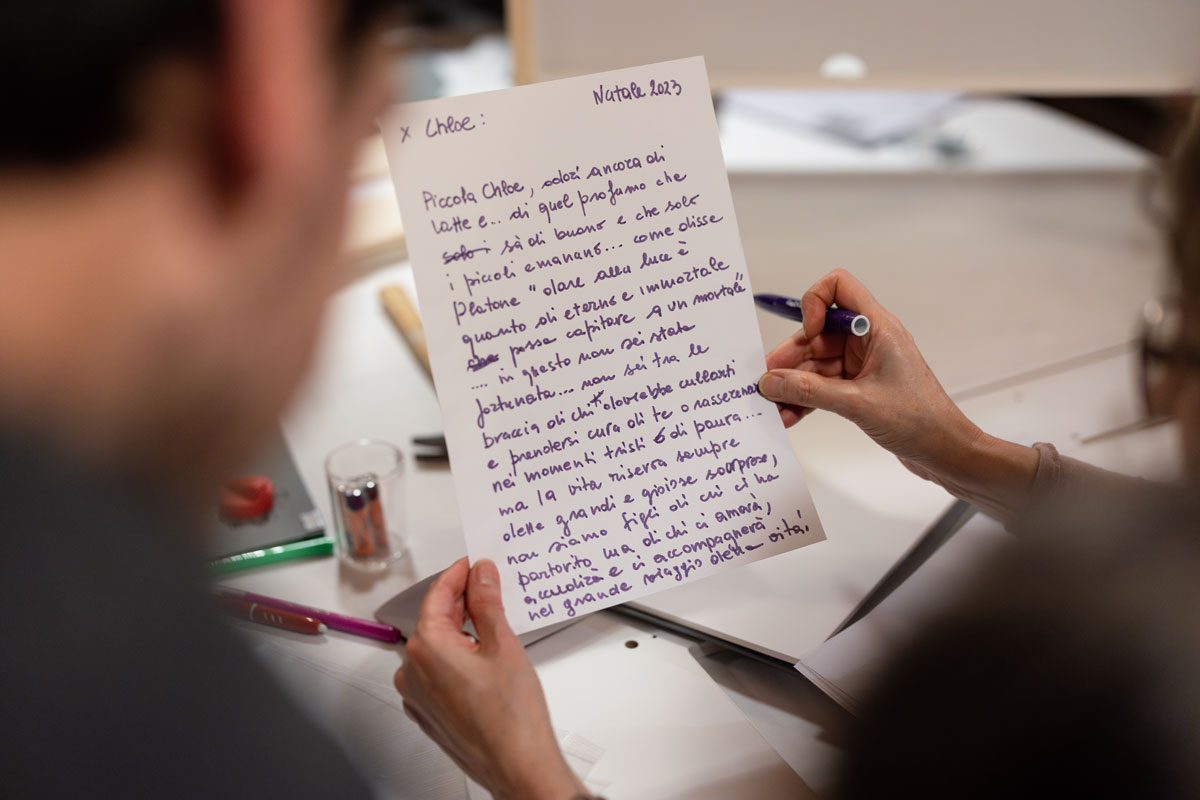 Natale 2023
x Chloe:
Piccola Chloe, odori ancora di
latte e.. di quel profumo che
solo sà di buono e che solo
i piccoli emanano... come disse
Platone "dare alla luce è
quanto di eterno e immortale
possa capitare a un mortale"
.... in questo non sei stata
fortunata... non sei tra le
braccia di chi dovrebbe cullarti
e prendersi cura di te o rasserenarti
nei momenti tristi o di paura...
ma la vita riserva sempre
delle grandi e gioiose sorprese,
non siamo figli di chi ci ha
partorito ma di chi ci amerà,
accudirà e ci accompagnerà
nel grande viaggio della vita!